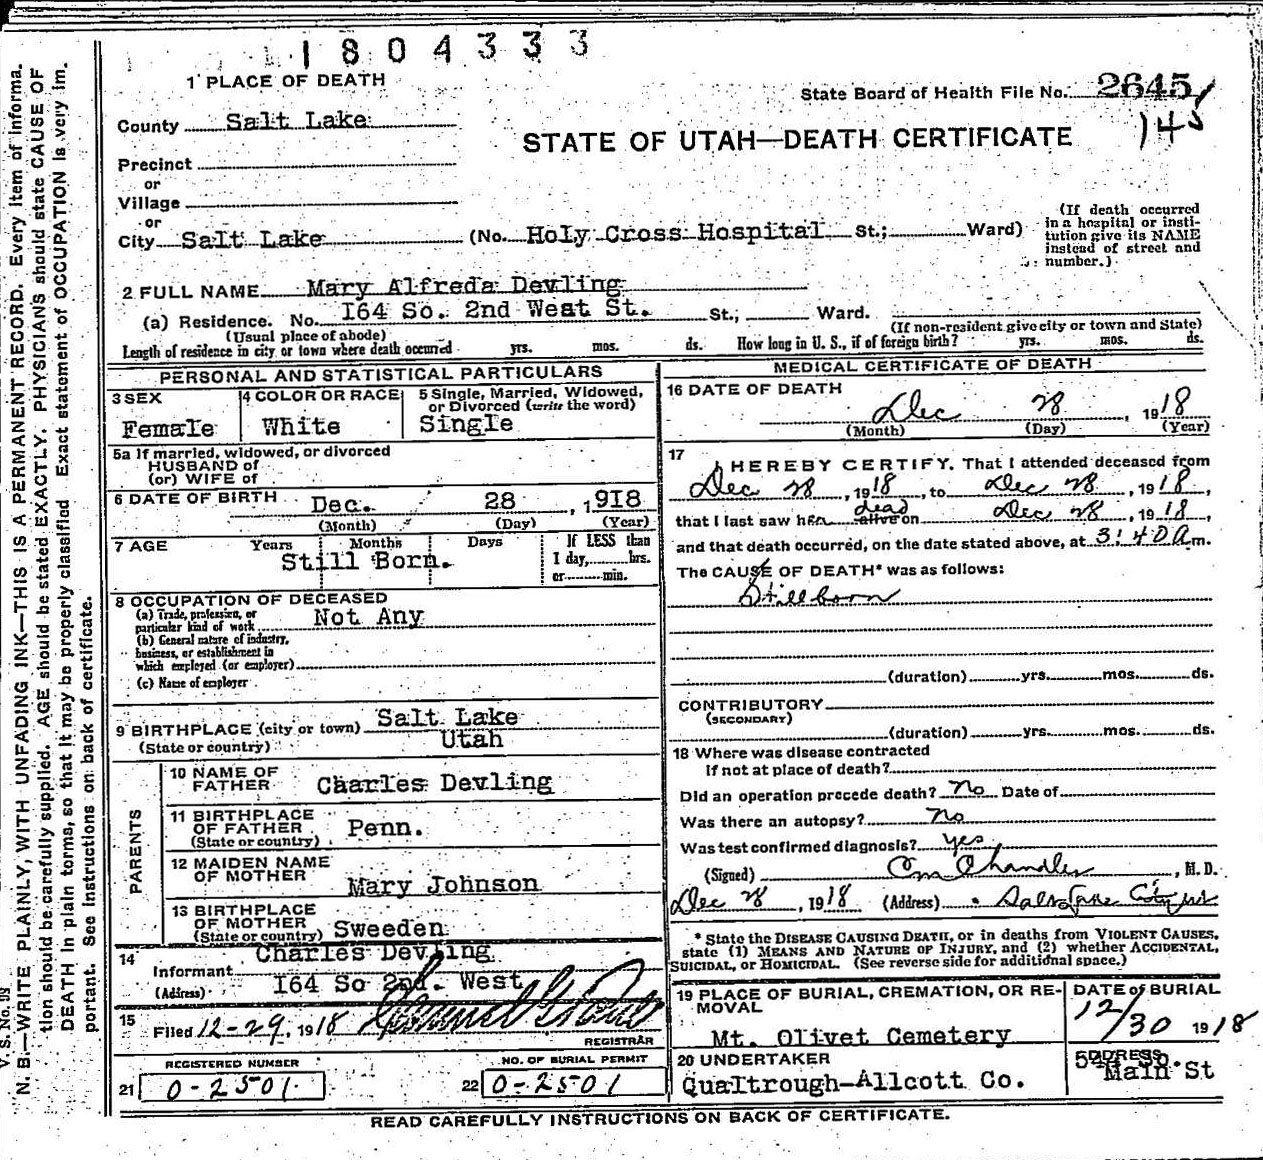 1804333
1 PLACE OF DEATH
State Board of Health File No. 2645
145
County Salt Lake
STATE OF UTAH—DEATH CERTIFICATE
Precinct
or
Village
or
City Salt Lake (No. Holy Cross Hospital St.; Ward)
(If death occurred
in a hospital or insti-
tution give its NAME
instead of street and
number.)
2 FULL NAME Mary Alfreda Devling
(a) Residence. No. I64 So. 2nd West St. St.; Ward.
(Usual place of abode) (If non-resident give city or town and State)
Length of residence in city or town where death occurred yrs. mos. ds. How long in U. S., if of foreign birth? yrs. mos. ds.
PERSONAL AND STATISTICAL PARTICULARS
3 SEX 4 COLOR OR RACE 5 Single, Married, Widowed,
or Divorced (write the word)
Female White Single
5a If married, widowed, or divorced
HUSBAND of
(or) WIFE of
6 DATE OF BIRTH Dec. 28, 1918
(Month) (Day) (Year)
7 AGE Years Months Days If LESS than
1 day, hrs.
or min.
Still Born.
8 OCCUPATION OF DECEASED
(a) Trade, profession, or
particular kind of work Not Any
(b) General nature of industry,
business, or establishment in
which employed (or employer)
(c) Name of employer
9 BIRTHPLACE (city or town) Salt Lake
(State or country) Utah
PARENTS
10 NAME OF
FATHER Charles Devling
11 BIRTHPLACE
OF FATHER
(State or country) Penn.
12 MAIDEN NAME
OF MOTHER Mary Johnson
13 BIRTHPLACE
OF MOTHER
(State or country) Sweeden
14 Charles Devling
Informant
(Address) I64 So 2nd. West
15 Filed 12-29, 1918
REGISTRAR
REGISTERED NUMBER NO. OF BURIAL PERMIT
21 0-2501 22 0-2501
MEDICAL CERTIFICATE OF DEATH
16 DATE OF DEATH
Dec 28, 1918
(Month) (Day) (Year)
17 I HEREBY CERTIFY, That I attended deceased from
Dec 28, 1918, to Dec 28, 1918,
that I last saw her alive dead on Dec 28, 1918,
and that death occurred, on the date stated above, at 3:40 A m.
The CAUSE OF DEATH* was as follows:
Stillborn
(duration) yrs. mos. ds.
CONTRIBUTORY
(SECONDARY)
(duration) yrs. mos. ds.
18 Where was disease contracted
If not at place of death?
Did an operation precede death? No Date of
Was there an autopsy? No
Was test confirmed diagnosis? Yes
(Signed) Chandler, M. D.
Dec 28, 1918 (Address) Salt Lake City Ut
* State the DISEASE CAUSING DEATH, or in deaths from VIOLENT CAUSES,
state (1) MEANS AND NATURE OF INJURY, and (2) whether ACCIDENTAL,
SUICIDAL, or HOMICIDAL. (See reverse side for additional space.)
19 PLACE OF BURIAL, CREMATION, OR RE-
MOVAL
Mt. Olivet Cemetery
DATE of BURIAL
12/30 1918
20 UNDERTAKER
Qualtrough-Allcott Co.
ADDRESS
Main St
READ CAREFULLY INSTRUCTIONS ON BACK OF CERTIFICATE.
V. S. No.
N. B.—WRITE PLAINLY, WITH UNFADING INK—THIS IS A PERMANENT RECORD. Every item of informa-
tion should be carefully supplied. AGE should be stated EXACTLY. PHYSICIANS should state CAUSE OF
DEATH in plain terms, so that it may be properly classified. Exact statement of OCCUPATION is very im-
portant. See instructions on back of certificate.